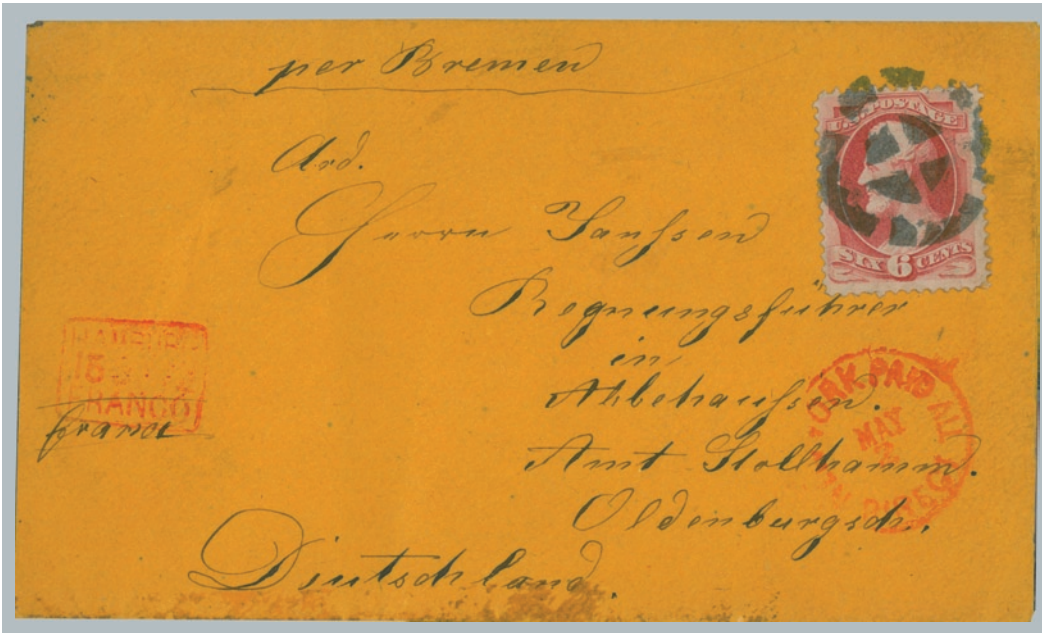 per Bremen
U.S. POSTAGE
SIX 6 CENTS
Herrn Janssen
Regnungsführer
in
Abbehaussen.
Amt Stollhamm.
Oldenburgsch.
Deutschland.
HAMBURG
FRANCO
franco
YORK PAID ALL
MAY
DIRECT